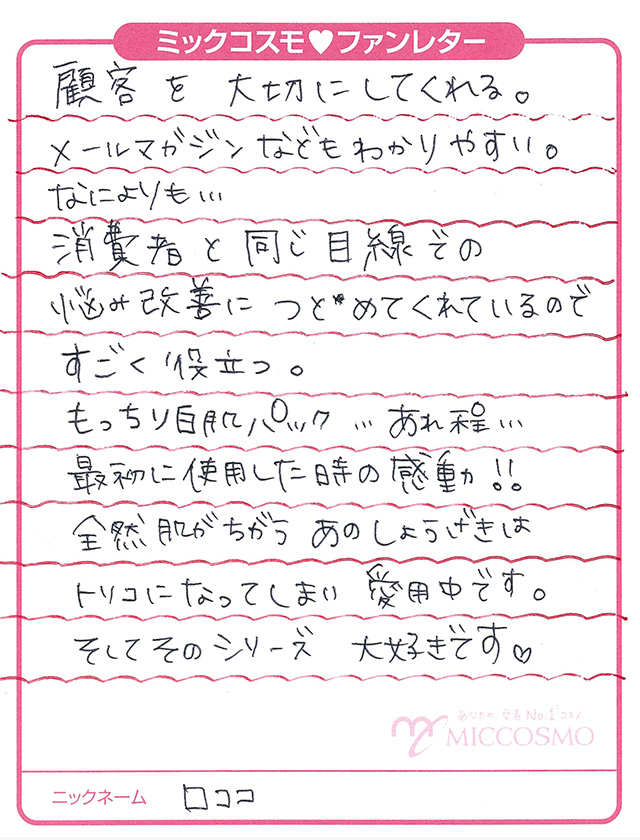 ミックコスモ♥ファンレター
顧客を 大切にしてくれる。
メールマガジンなどもわかりやすい。
なによりも…
消費者と同じ目線での
悩み改善に つとめてくれているので
すごく役立つ。
もっちり白肌パック…あれ程…
最初に使用した時の感動!!
全然肌がちがう あのしょうげきは
トリコになってしまい 愛用中です。
そしてそのシリーズ 大好きです♡
あなたの、愛着No.1コスメ
MICCOSMO
ニックネーム ロココ